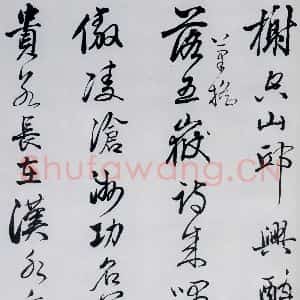 榭空山邱興酣
落筆搖五嶽詩成
傲凌滄洲功名
貴若長在漢水
Shufawang.CN